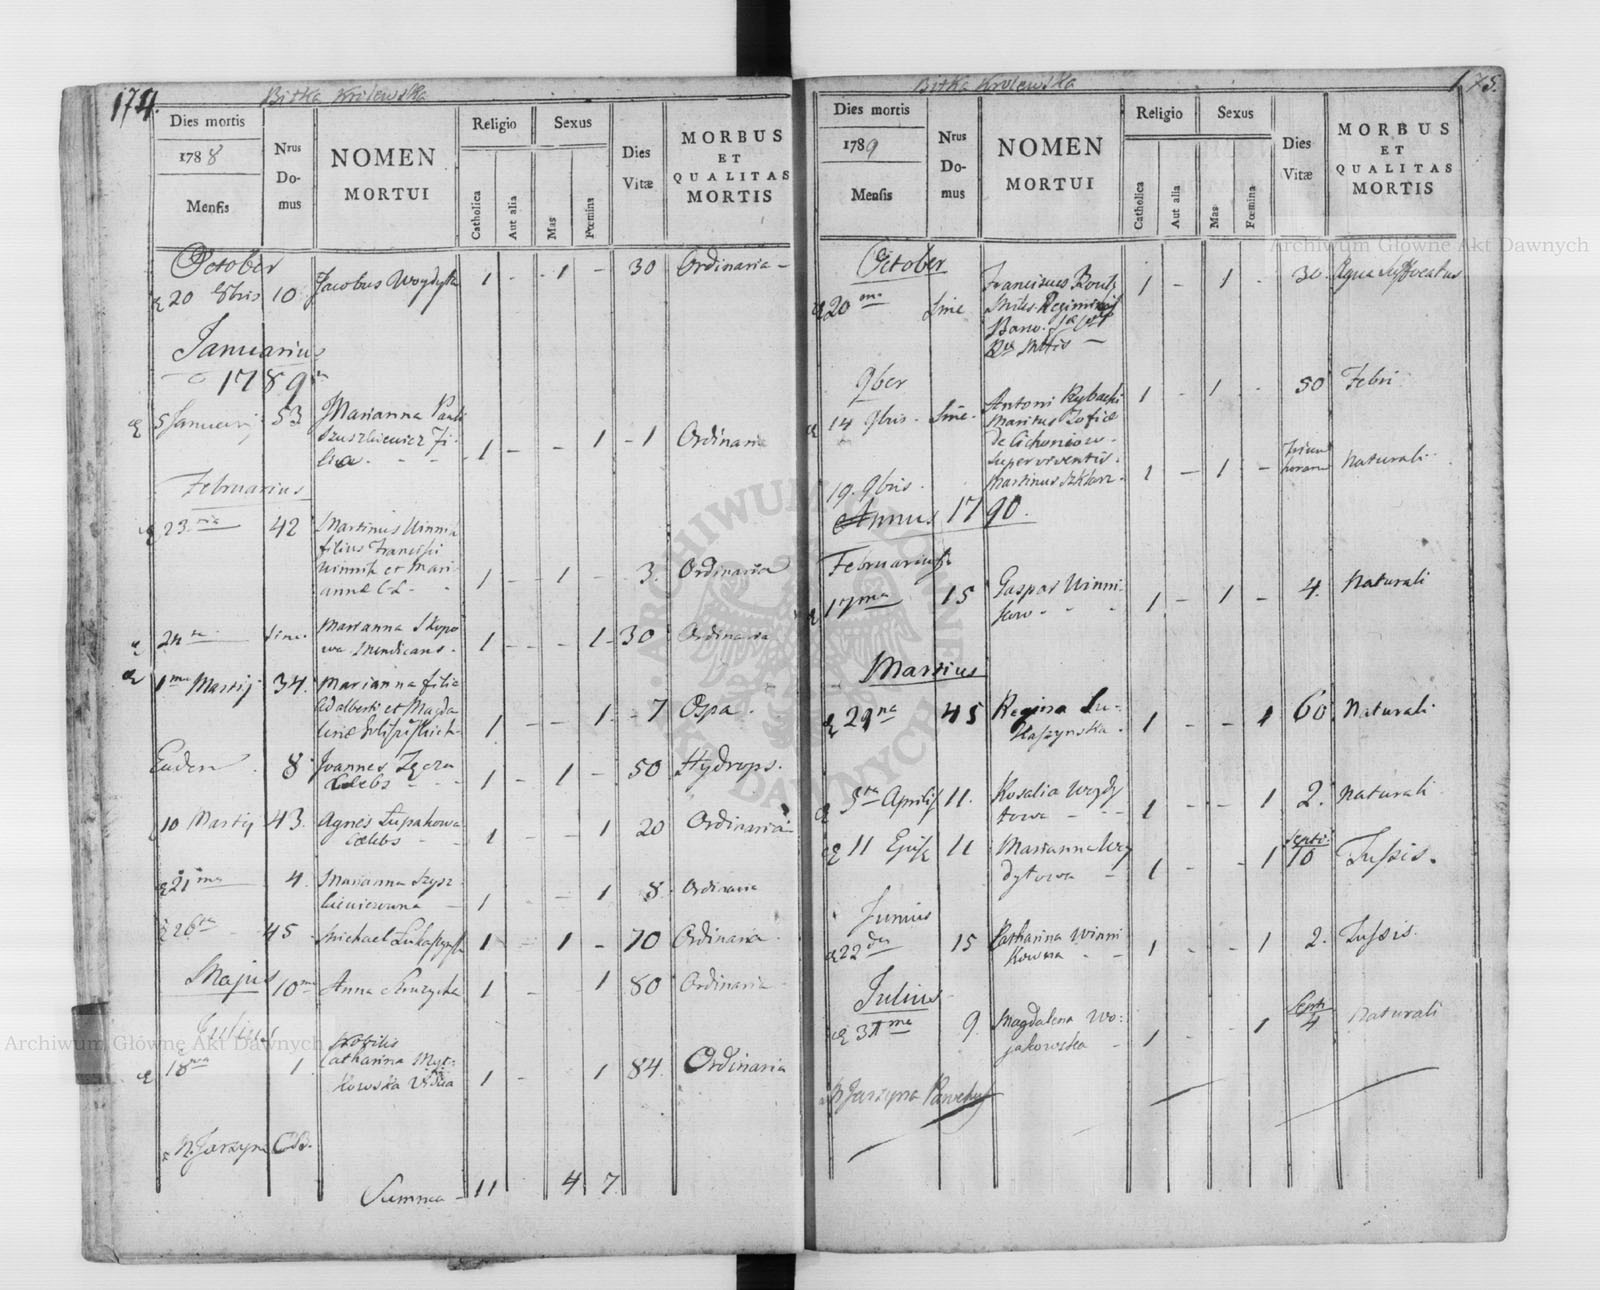 174.
Bitka Krolewska
Dies mortis
1788
Mensis
Nrus
Do-
mus
NOMEN
MORTUI
Religio
Catholica
Aut alia
Sexus
Mas
Fœmina
Dies
Vitæ
MORBUS
ET
QUALITAS
MORTIS
October
20 8bris 10 Jacobus 1 - 1 - 30 Ordinaria -
Januarius
1789
5 Januarij 53 Marianna Pauli
Fi-
lia - 1 - - 1 - 1 Ordinaria
Februarius
23 42 Martinus Winni
filius Francisci
et Mari-
annæ C.L. - 1 - 1 - 3. Ordinaria
sine. Marianna Skopo
wa Mendicans - 1 - - 1 - 30 Ordinaria
1ma Martij 34. Marianna filia
Adalberti et Magda
lenæ 1 - - 1 - 7 Ospa.
Eadem 8 Joannes
Cœlebs - 1 - 1 - 50 Hydrops.
10 Martij 43. Agnes Lupakowa
Cœlebs - 1 - - 1 20 Ordinaria
21ma 4. Marianna Szysz
- 1 - - 1 8. Ordinaria
26ta 45 Michael 1 - 1 - 70 Ordinaria
Majus
10ma Anna 1 - 1 80 Ordinaria
Julius
18va 1 Nobilis
Catharina Myt-
kowska Vidua 1 - 1 84. Ordinaria
N. Jarzyna
Summa - 11 4 7.
Bitka Krolewska
175.
Dies mortis
1789
Mensis
Nrus
Do-
mus
NOMEN
MORTUI
Religio
Catholica
Aut alia
Sexus
Mas
Fœmina
Dies
Vitæ
MORBUS
ET
QUALITAS
MORTIS
October
20ma Sine Franciscus
Miles Regiminis
1 - 1 - 30. Aqua Suffocatus
9ber
14 9bris - Sine - Antoni Rybacki
Maritus Zofiæ
de Cichoniow -
superviventis. 1 - 1 - 50 Febri
19. 9bris - Martinus Szklarz - 1 - 1 - Naturali
Annus 1790.
Februarius
17ma 15 Gaspar Winni-
kow - 1 - 1 - 4. Naturali
Martius
29na 45 Regina Lu-
kaszynska. 1 - - 1 60 Naturali
5ta Aprilis 11. Rosalia Woydy
towa - 1 - - 1 2. Naturali
11 Ejusd. 11 Marianna Woy
dytowa - 1 - 1 Septi: 10 Tussis.
Junius
22da 15 Catharina Winni
kowna - 1 - - 1 2. Tussis.
Julius
31ma 9. Magdalena Wo-
jakowska - 1 - 1 Septi 4 Naturali
N. Jarzyna
Archiwum Główne Akt Dawnych
Archiwum Główne Akt Dawnych
ARCHIWUM GŁÓWNE AKT DAWNYCH